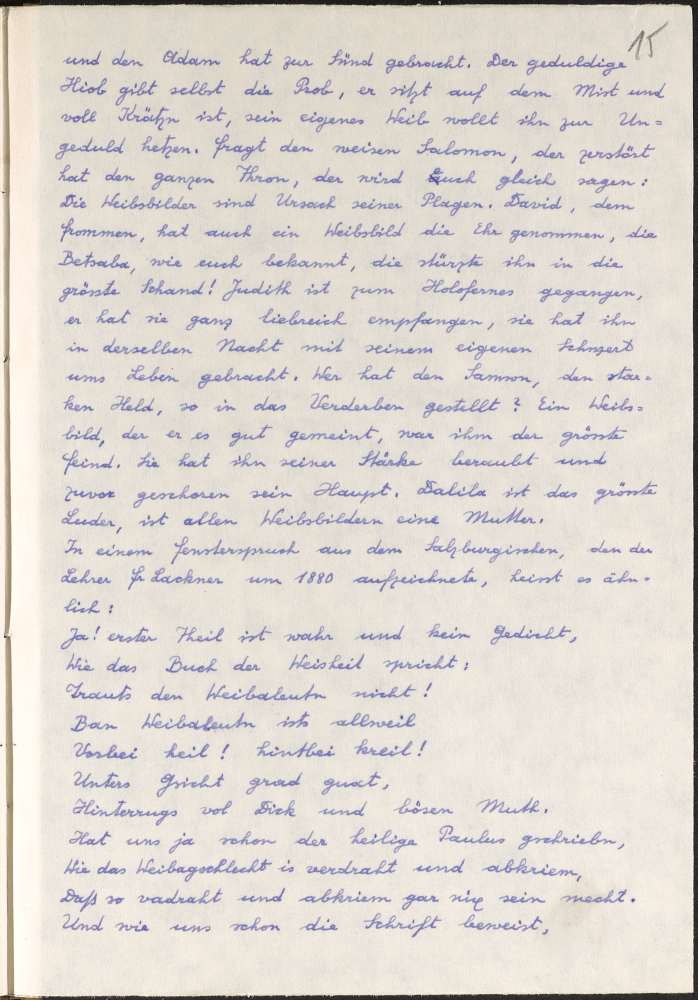 15
und den Adam hat zur Sünd gebracht. Der geduldige
Hiob gibt selbst die Prob, er sitzt auf dem Mist und
voll Krätzn ist, sein eigenes Weib wollt ihn zur Un=
geduld hetzen. Fragt den weisen Salomon, der zerstört
hat den ganzen Thron, der wird Euch gleich sagen:
Die Weibsbilder sind Ursach seiner Plagen. David, dem
frommen, hat auch ein Weibsbild die Ehr genommen, die
Betsaba, wie euch bekannt, die stürzte ihn in die
grösste Schand! Judith ist zum Holofernes gegangen,
er hat sie ganz liebreich empfangen, sie hat ihn
in derselben Nacht mit seinem eigenen Schwert
ums Leben gebracht. Wer hat den Samson, den star=
ken Held, so in das Verderben gestellt? Ein Weibs=
bild, der er es gut gemeint, war ihm der grösste
Feind. Sie hat ihn seiner Stärke beraubt und
zuvor geschoren sein Haupt. Dalila ist das grösste
Luder, ist allen Weibsbildern eine Mutter.
In einem Fensterspruch aus dem Salzburgischen, den der
Lehrer Fr Lackner um 1880 aufzeichnete, heisst es ähn=
lich:
Ja! erster Theil ist wahr und kein Gedicht,
Wie das Buch der Weisheit spricht:
Trauts den Weibaleutn nicht!
Ban Weibaleutn ists allweil
Vorbei heil! hintbei kreil!
Unters Gsicht grad guat,
Hinterrugs vol Dick und bösen Muth.
Hat uns ja schon der heilige Paulus gschriebn,
Wie das Weibagschlecht is verdraht und abkriem,
Daß so vadraht und abkriem gar nix sein mecht.
Und wie uns schon die Schrift beweist,